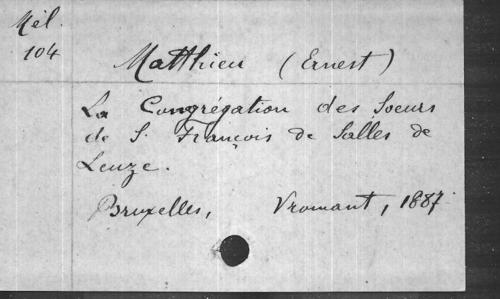 Mél.
104
Matthieu (Ernest)
La Congrégation des Soeurs
de S. François de Salles de
Leuze.
Bruxelles, Vromant, 1887